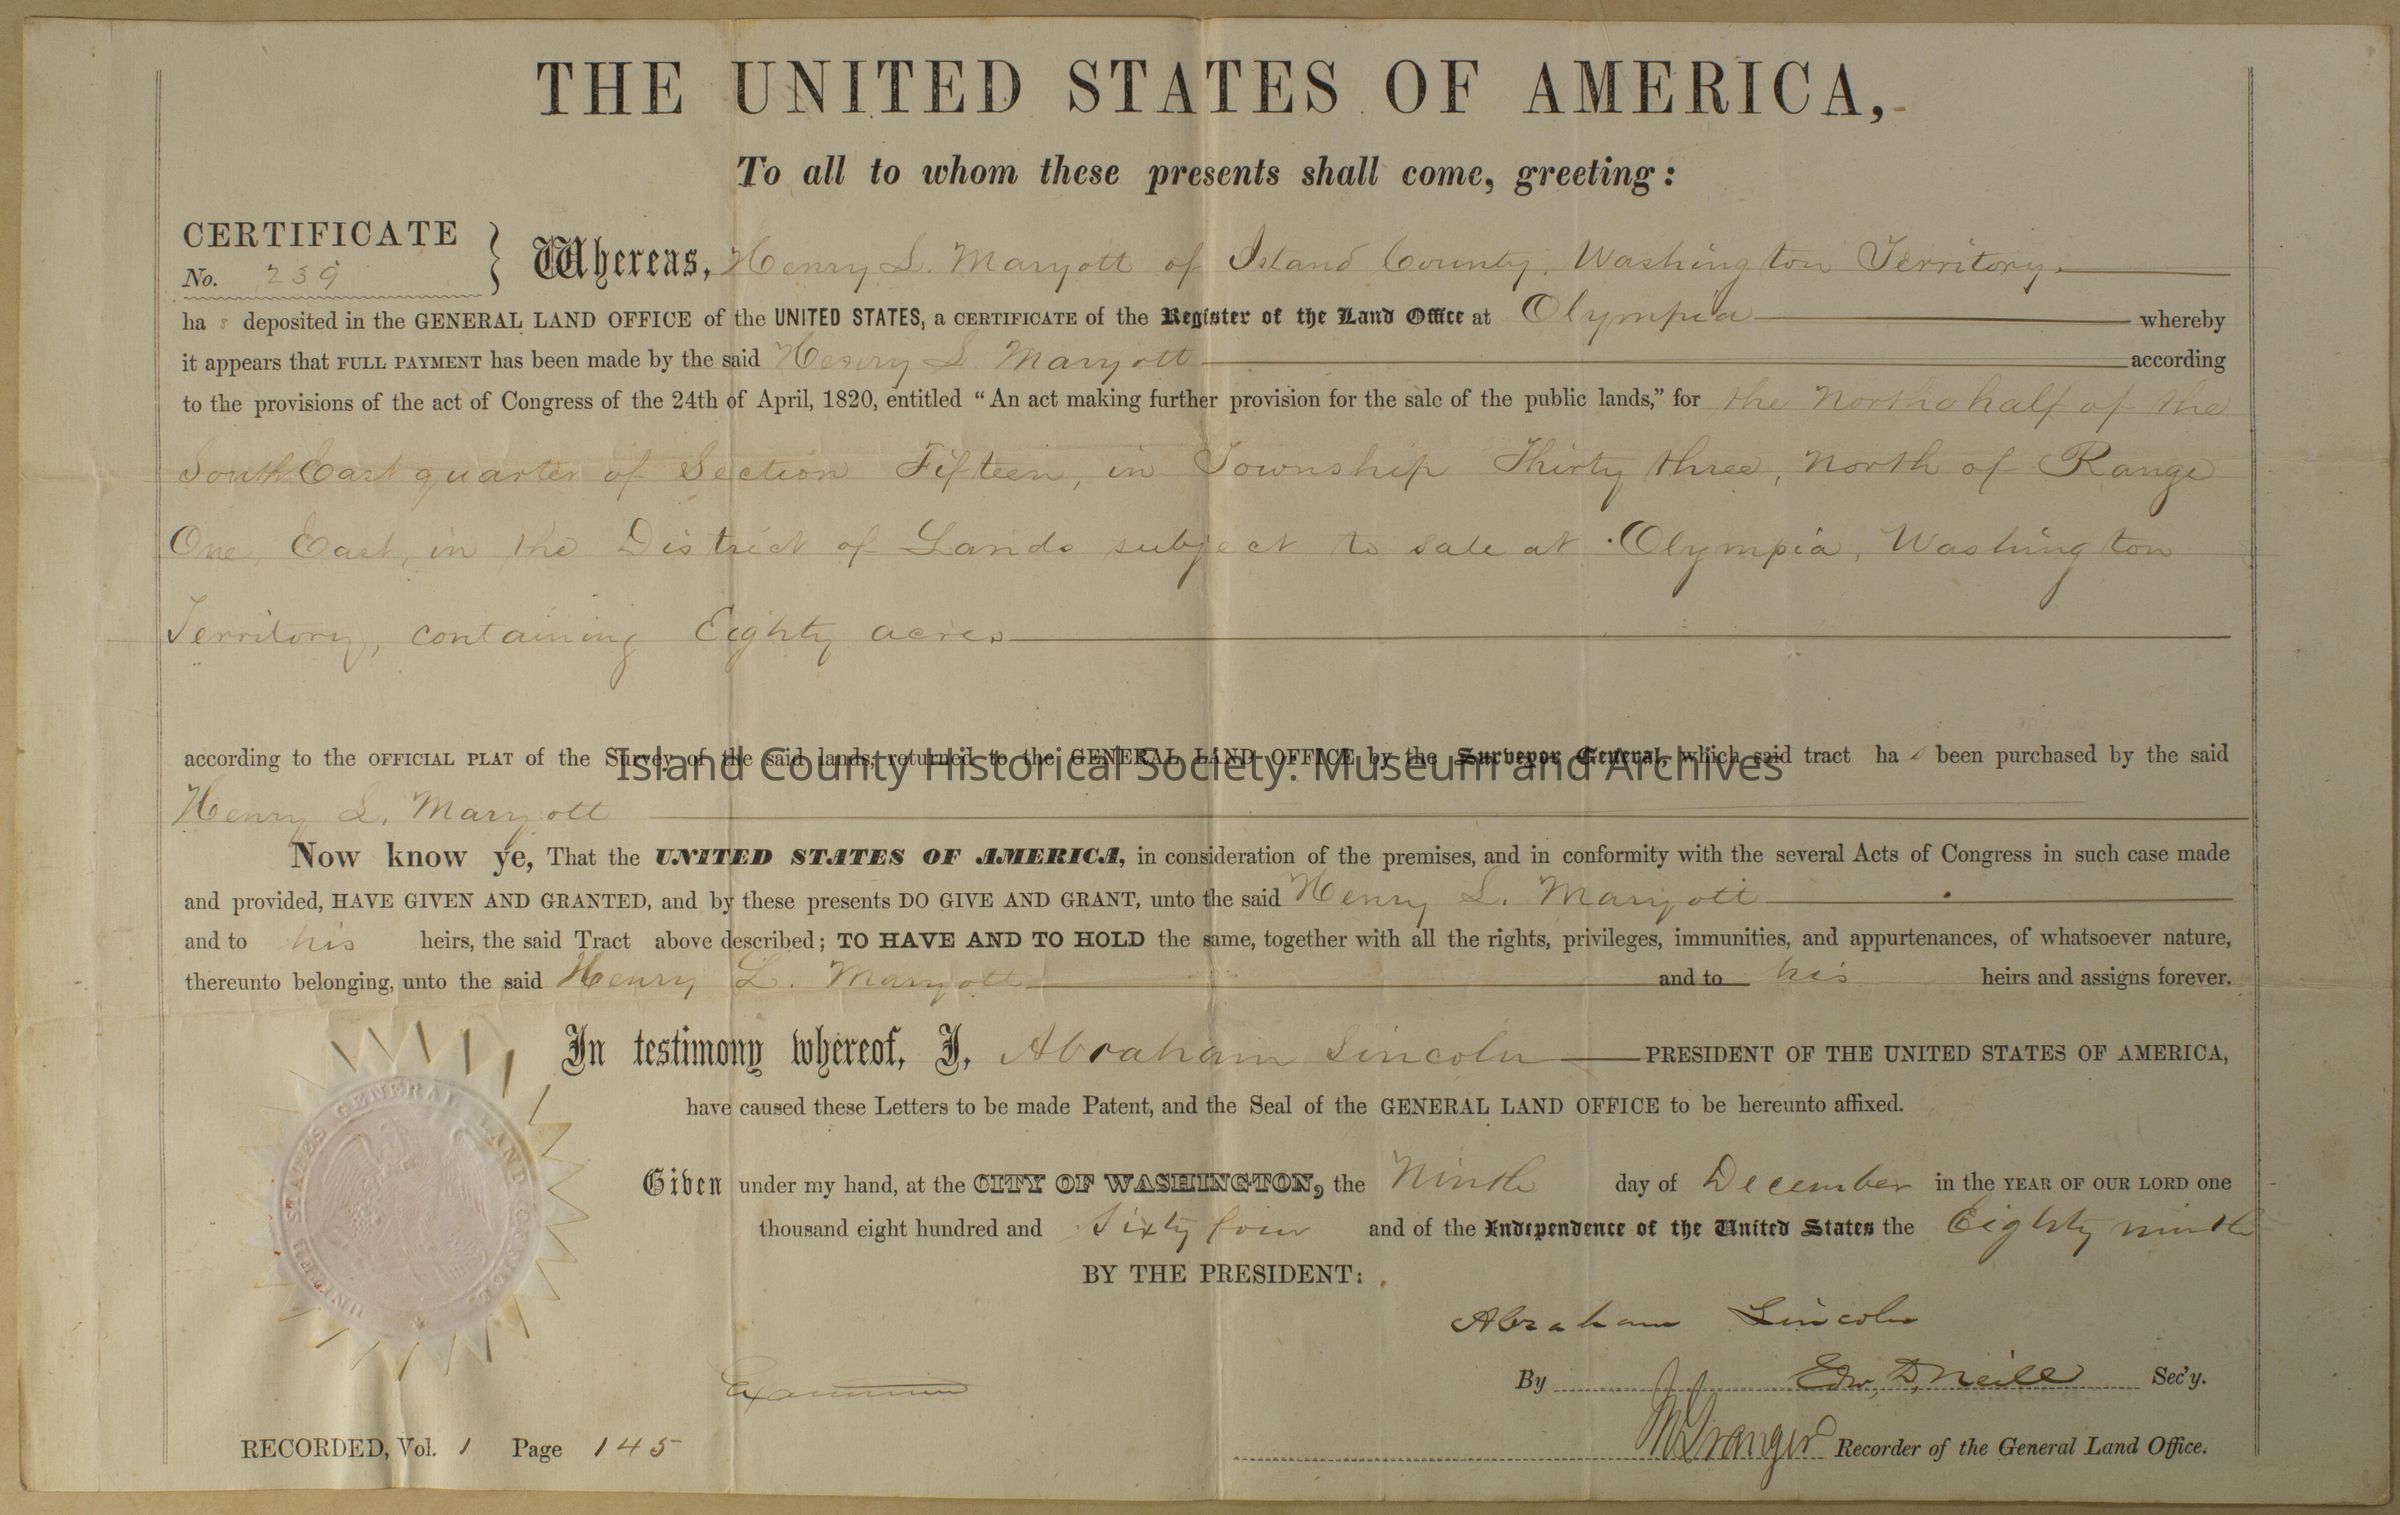 THE UNITED STATES OF AMERICA,
To all to whom these presents shall come, greeting:
CERTIFICATE
No. 239
Whereas, Henry L. Maryott of Island County, Washington Territory
ha s deposited in the GENERAL LAND OFFICE of the UNITED STATES, a CERTIFICATE of the Register of the Land Office at Olympia whereby
it appears that FULL PAYMENT has been made by the said Henry L Maryott according
to the provisions of the act of Congress of the 24th of April, 1820, entitled “An act making further provision for the sale of the public lands,” for the North half of the
South East quarter of Section Fifteen, in Township Thirty three, North of Range
One East, in the District of Lands subject to sale at Olympia, Washington
Territory, containing Eighty acres
according to the OFFICIAL PLAT of the Survey of the said lands, returned to the GENERAL LAND OFFICE by the Surveyor General, which said tract ha s been purchased by the said
Island County Historical Society: Museum and Archives
Henry L. Maryott
Now know ye, That the UNITED STATES OF AMERICA, in consideration of the premises, and in conformity with the several Acts of Congress in such case made
and provided, HAVE GIVEN AND GRANTED, and by these presents DO GIVE AND GRANT, unto the said Henry L. Maryott
and to his heirs, the said Tract above described; TO HAVE AND TO HOLD the same, together with all the rights, privileges, immunities, and appurtenances, of whatsoever nature,
thereunto belonging, unto the said Henry L. Maryott and to his heirs and assigns forever.
In testimony whereof, I, Abraham Lincoln PRESIDENT OF THE UNITED STATES OF AMERICA,
have caused these Letters to be made Patent, and the Seal of the GENERAL LAND OFFICE to be hereunto affixed.
Given under my hand, at the CITY OF WASHINGTON, the Ninth day of December in the YEAR OF OUR LORD one
thousand eight hundred and Sixty four and of the Independence of the United States the Eighty ninth
BY THE PRESIDENT:
Abraham Lincoln
By Edw. D. Neill Sec'y.
UNITED STATES GENERAL LAND OFFICE
RECORDED, Vol. 1 Page 145
Granger Recorder of the General Land Office.